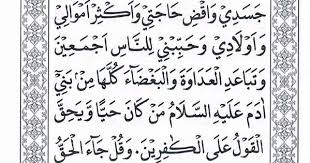 جَسَدِيْ وَاقْضِ حَاجَتِيْ وَاَكْثِرْ اَمْوَالِيْ
وَاَوْلَادِيْ وَحَبِّبْنِيْ لِلنَّاسِ اَجْمَعِيْنَ
وَتَبَاعَدِ الْعَدَاوَةَ وَالْبَغْضَآءَ كُلَّهَا مِنْ بَنِيْ
اٰدَمَ عَلَيْهِ السَّلَامُ مَنْ كَانَ حَيًّا وَّيَحِقَّ
الْقَوْلُ عَلَى الْكٰفِرِيْنَ. وَقُلْ جَآءَ الْحَقُّ